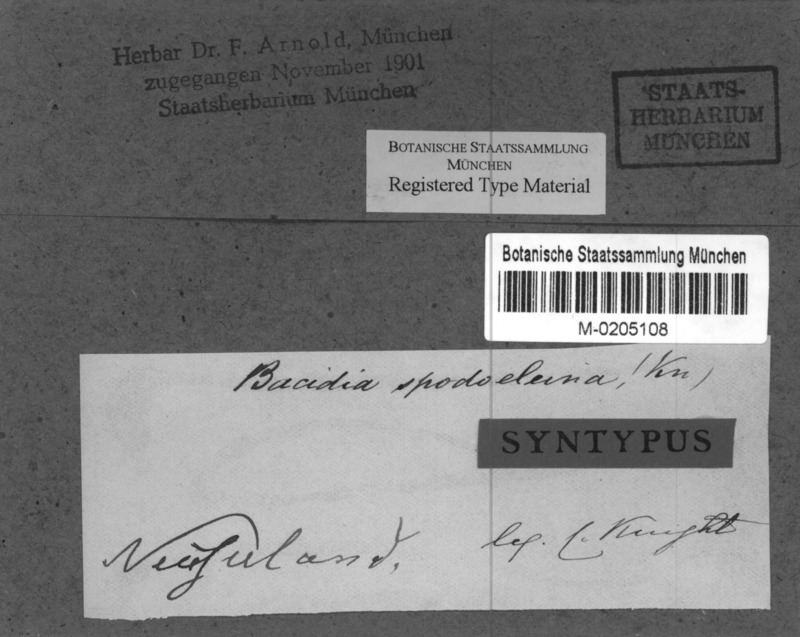 Herbar Dr. F. Arnold, München
zugegangen November 1901
Staatsherbarium München
STAATS-
HERBARIUM
MÜNCHEN
BOTANISCHE STAATSSAMMLUNG
MÜNCHEN
Registered Type Material
Botanische Staatssammlung München
M-0205108
Bacidia (Kn)
SYNTYPUS
Neuseeland.
leg. C. Knight